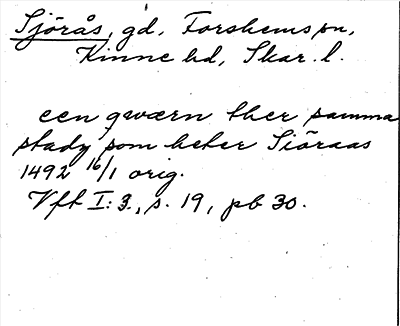 Sjörås, gd, Forshems sn,
Kinne hd, Skar. l.
een qwærn ther samma
stadz som heter Siöraas
1492 16/1 orig.
Vft I:3., s. 19, pb 30.